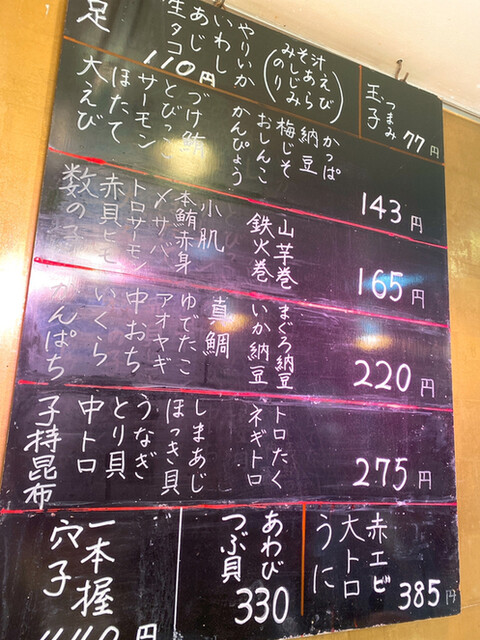 つまみ
玉子
77円
みそ汁
(えび
あら
しじみ
のり)
やりいか
いわし
あじ
生タコ
足
110円
かっぱ
納豆
梅じそ
おしんこ
かんぴょう
づけ鮪
とびっこ
サーモン
ほたて
大えび
143円
山芋巻
鉄火巻
小肌
本鮪赤身
〆サバ
トロサーモン
赤貝ヒモ
数の子
165円
まぐろ納豆
いか納豆
真鯛
ゆでたこ
アオヤギ
中おち
いくら
かんぱち
220円
トロたく
ネギトロ
しまあじ
ほっき貝
うなぎ
とり貝
中トロ
子持昆布
275円
赤エビ
大トロ
うに
385円
あわび
つぶ貝
330
一本握
穴子
円